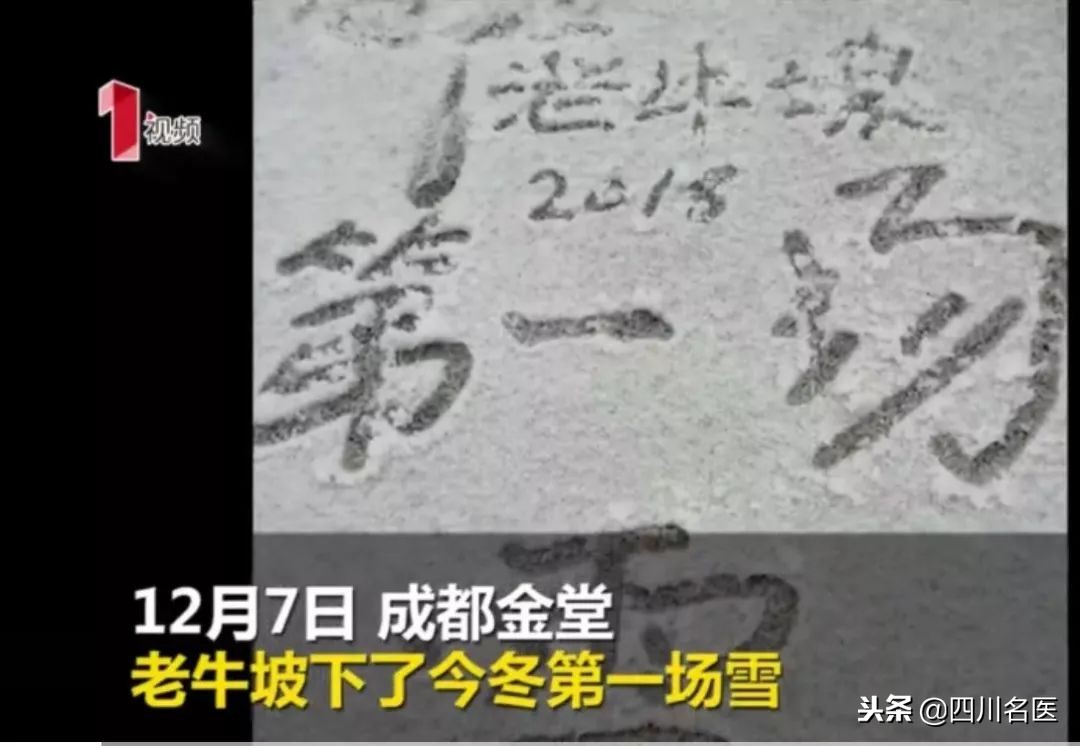 1视频
老牛坡
2018
第一场
12月7日 成都金堂
老牛坡下了今冬第一场雪
头条 @四川名医